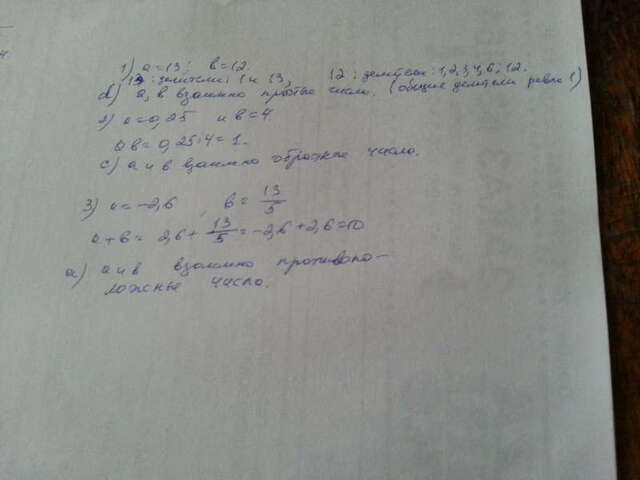 1) a = 13; b = 12
13: делители: 1 и 13, 12: делители: 1, 2, 3, 4, 6, 12.
d) a, b взаимно простые числа. (общие делители равны 1)
2) a = 0,25 и b = 4
ab = 0,25·4 = 1.
c) a и b взаимно обратные числа.
3) a = -2,6, b = 13/5
a + b = 2,6 + 13/5 = -2,6 + 2,6 = 0
a) a и b взаимно противопо-
ложные числа.
ЗАКАЗ